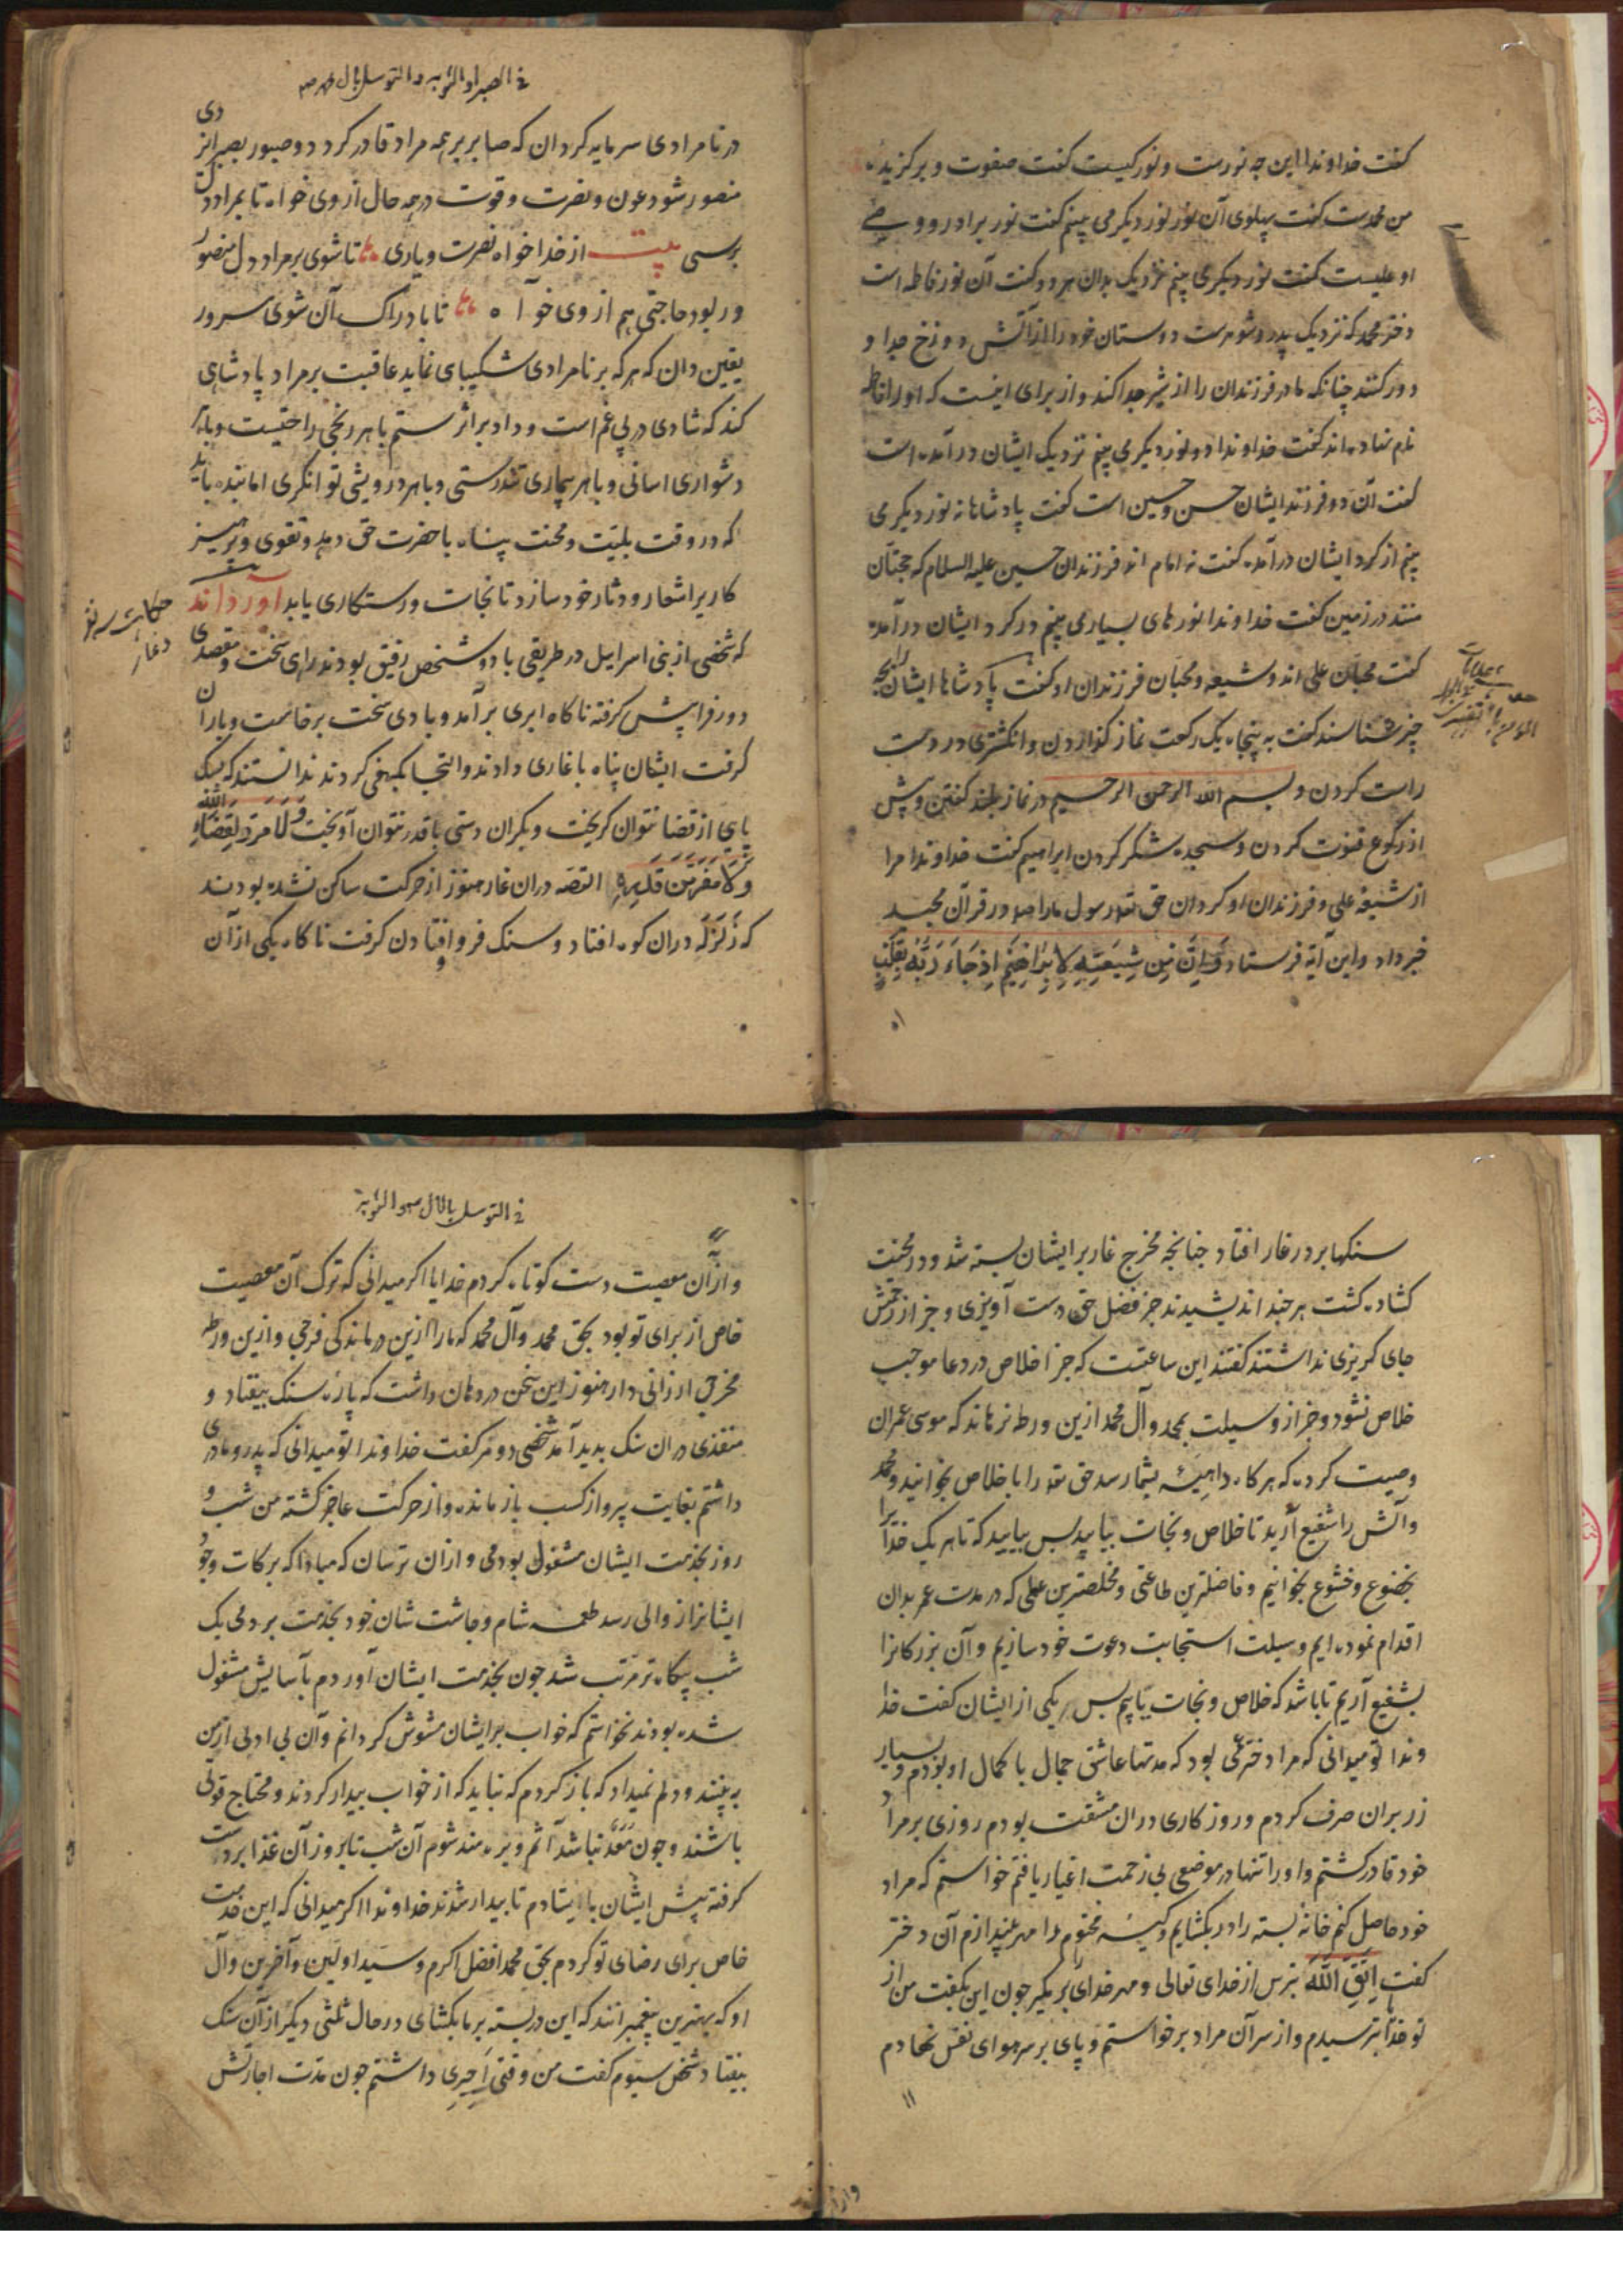 کفت خداوندا این چه نورست و نور کیست کفت صفوت و برکزیده
من محمدست کفت پهلوی آن نور نور دیکر می بینم کفت نور برادر و وصی
او علیست کفت نور دیکری بینم نزدیک بدان هر دو کفت آن نور فاطمه است
دختر محمد که نزدیک پدر و شوهرست دوستان خود را از آتش دوزخ جدا و
دور کنند چنانکه مادر فرزندان را از شیر جدا کند و از برای اینست که او را فاطمه
نام نهاده اند کفت خداوندا دو نور دیکر می بینم نزدیک ایشان در آمده است
کفت آن دو فرزند ایشان حسن و حسین است کفت پادشاها نه نور دیکر می
بینم از کرد ایشان درآمده کفت نه امام اند فرزندان حسین علیه السلام که حجتان
منند در زمین کفت خداوندا نورهای بسیار می بینم در کرد ایشان درآمده
کفت محبان علی اند و شیعه و محبان فرزندان او کفت پادشاها ایشان را بچه
چیز شناسند کفت به پنجاه یک رکعت نماز کذاردن و انکشتری در دست
راست کردن و بسم الله الرحمن الرحیم در نماز بلند کفتن و پیش
از رکوع قنوت کردن و سجده شکر کردن ابراهیم کفت خداوندا مرا
از شیعه علی و فرزندان او کردان حق تعه رسول ما را در قرآن مجید
خبر داد و این آیة فرستاد وَاِنَّ مِن شِیعَتِهِ لَاِبرَاهِیمَ اِذ جَاءَ رَبَّهُ بِقَلبٍ
۱۰
فی الصبر و التوبه و التوسل بال محمد ص
در نامرادی سرمایه کردان که صابر بر همه مراد قادر کردد و صبور بصبر از دی
منصور شود عون و نصرت و قوت در همه حال از وی خواه تا بمراد دل
برسی بیت از خدا خواه نصرت و یاری تا شوی بر مراد دل منصور
ور بود حاجتی هم از وی خواه تا بادراک آن شوی مسرور
یقین دان که هر که بر نامرادی شکیبای نماید عاقبت بر مراد پادشاهی
کند که شادی در پی غم است و داد بر اثر ستم با هر رنجی راحتیست و با هر
دشواری اسانی و با هر بیماری تندرستی و با هر درویشی توانکری اما بنده باید
که در وقت بلیت و محنت پناه با حضرت حق دهد و تقوی و پرهیز
کاری را شعار و دثار خود سازد تا نجات و رستکاری یابد آورده اند
که شخصی از بنی اسراییل در طریقی با دو شخص رفیق بودند راهی سخت و مقصدی
دور فرا پیش کرفته ناکاه ابری برآمد و بادی سخت برخاست و باران
کرفت ایشان پناه با غاری دادند و التجا بکهفی کردند ندانستند که بسبک
پایی از قضا نتوان کریخت و بکران دستی با قدر نتوان آویخت وَلَا مَرَدَّ لِقَضَاءِ اللّٰه
وَلَا مَفَرَّ مِن قَدَرِهِ القصه دران غار هنوز از حرکت ساکن نشده بودند
که زَلزَلَه دران کوه افتاد و سنک فرو افتادن کرفت ناکاه یکی از آن
حکایت سه نفر
در غار
سنکها بر در غار افتاد چنانچه مخرج غار بر ایشان بسته شد و در محنت
کشاده کشت هر چند اندیشیدند جز فضل حق دست آویزی و جز از رحمتش
جای کریزی نداشتند کفتند این ساعتیست که جز اخلاص در دعا موجب
خلاص نشود و جز از وسیلت بمحمد و آل محمد ازین ورطه نرهاند که موسی عمران
وصیت کرده که هر کاه داهیئه بشما رسد حق تعه را با خلاص بخوانید و محمد
و آلش را شفیع آرید تا خلاص و نجات بیابید پس بیایید که تا هر یک خدا را
بخضوع و خشوع بخوانیم و فاضلترین طاعتی و مخلصترین عملی که در مدت عمر بدان
اقدام نموده ایم وسیلت استجابت دعوت خود سازیم و آن بزرکانرا
بشفیع آریم تا باشد که خلاص و نجات یابیم پس یکی از ایشان کفت خدا
وندا تو میدانی که مرا دختر عمی بود که مدتها عاشق جمال با کمال او بودم و بسیار
زر بران صرف کردم و روزکاری دران مشقت بودم روزی بر مراد
خود قادر کشتم و او را تنها در موضعی بی زحمت اغیار یافتم خواستم که مراد
خود حاصل کنم خانهٔ بسته را در بکشایم و کیسه مختوم را مهر بیندازم آن دختر
کفت اِتَّقِ اللّٰهَ بترس از خدای تعالی و مهر خدای را بر مکیر چون این بکفت من از
تو خدا بترسیدم و از سر آن مراد برخواستم و پای بر سر هوای نفس نهادم
۱۱
فی التوسل بالال محمد و التوبة
و از آن معصیت دست کوتاه کردم خدایا اکر میدانی که ترک آن معصیت
خاص از برای تو بود بحق محمد و آل محمد که ما را ازین درماندکی فرجی و ازین ورطه
مخرجی ارزانی دار هنوز این سخن در دهان داشت که پارهٔ سنک بیفتاد و
منفذی دران سنک بدید آمد شخصی دومر کفت خداوندا تو میدانی که پدر و مادری
داشتم بغایت پیر و از کسب باز مانده و از حرکت عاجز کشته من شب و
روز بخدمت ایشان مشغول بودمی و ازان ترسان که مبادا که برکات وجود
ایشانرا زوالی رسد طعمه شام و چاشت شان خود بخدمت بردمی یک
شب بیکاه تر مرتب شد چون بخدمت ایشان آوردم بآسایش مشغول
شده بودند نخواستم که خواب بر ایشان مشوش کردانم و آن بی ادبی از من
به بینند و دلم نمیداد که باز کردم که نباید که از خواب بیدار کردند و محتاج قوتی
باشند و چون مُعَدّ نباشد آثم و بزه مند شوم آن شب تا بروز آن غذا بر دست
کرفته پیش ایشان با ایستادم تا بیدار شدند خداوندا اکر میدانی که این خدمت
خاص برای رضای تو کردم بحق محمد افضل اکرم و سید اولین و آخرین و آل
او که بهترین پیغمبرانند که این در بسته بر ما بکشای در حال ثلثی دیکر از آن سنک
بیفتاد شخص سیوم کفت من وقتی اَجیرِی داشتم چون مدت اجارتش